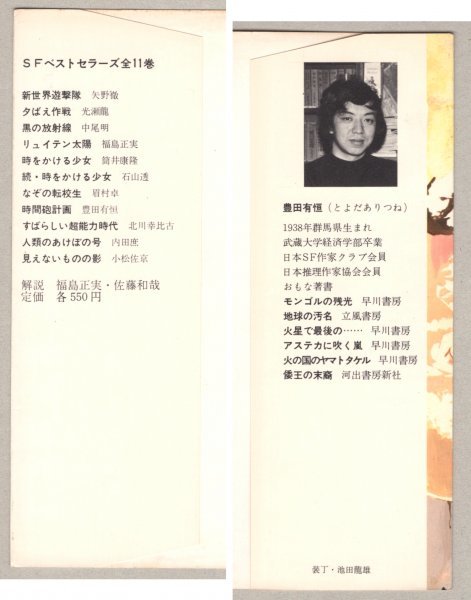 SFベストセラーズ全11巻
新世界遊撃隊 矢野徹
夕ばえ作戦 光瀬龍
黒の放射線 中尾明
リュイテン太陽 福島正実
時をかける少女 筒井康隆
続・時をかける少女 石山透
なぞの転校生 眉村卓
時間砲計画 豊田有恒
すばらしい超能力時代 北川幸比古
人類のあけぼの号 内田庶
見えないものの影 小松左京
解説 福島正実・佐藤和哉
定価 各550円
豊田有恒(とよだありつね)
1938年群馬県生まれ
武蔵大学経済学部卒業
日本SF作家クラブ会員
日本推理作家協会会員
おもな著書
モンゴルの残光 早川書房
地球の汚名 立風書房
火星で最後の…… 早川書房
アステカに吹く嵐 早川書房
火の国のヤマトタケル 早川書房
倭王の末裔 河出書房新社
装丁・池田龍雄